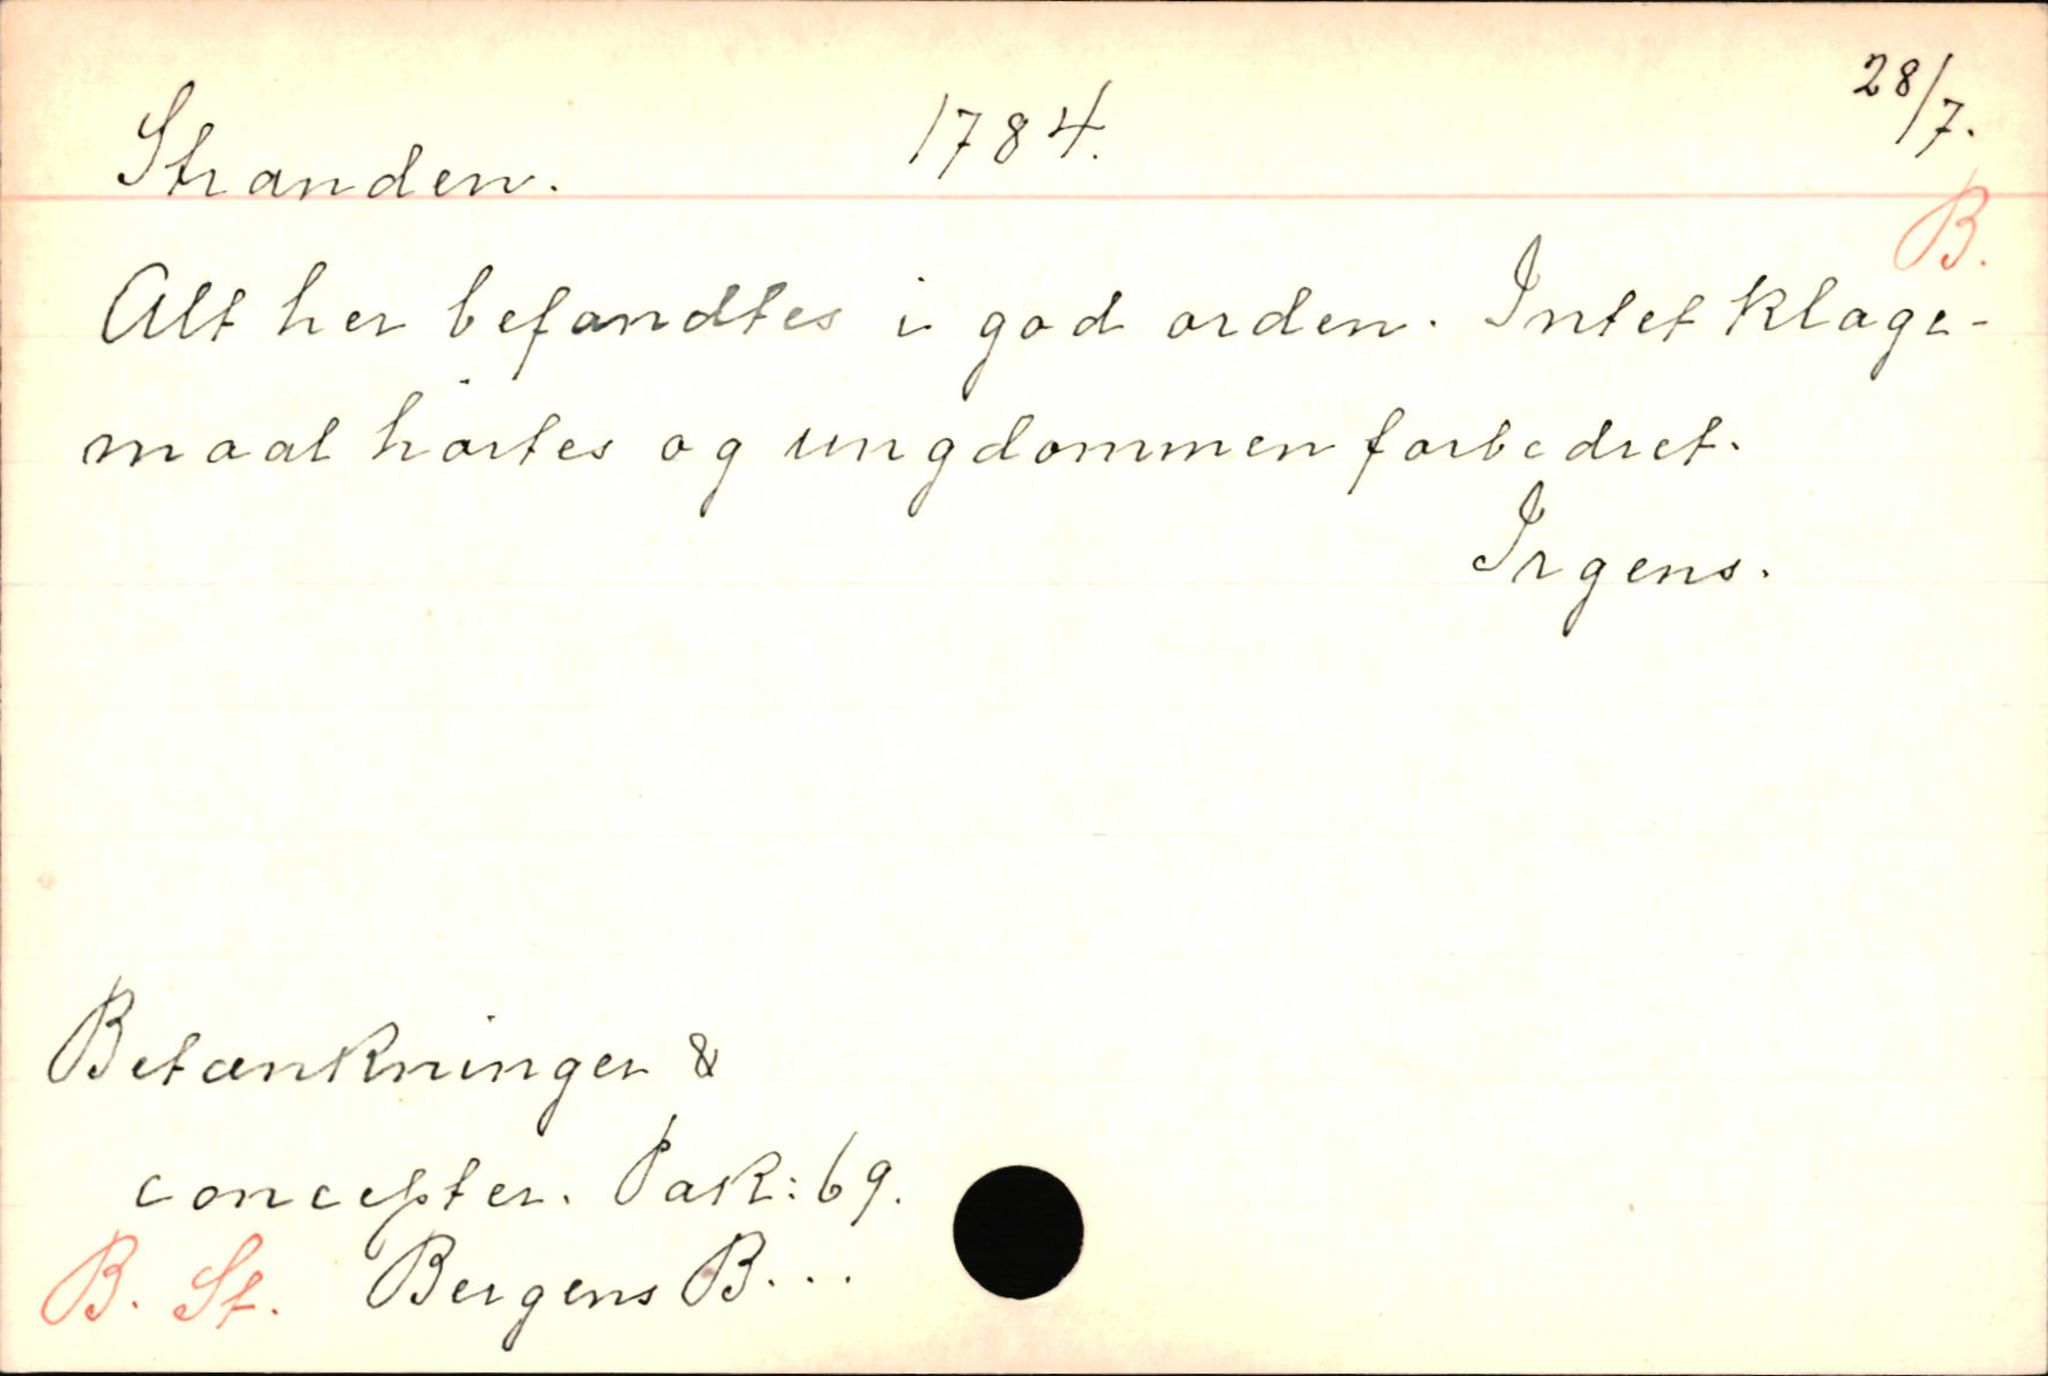 Stranden. 1784. 28/7.
B.
Alt her befandtes i god orden. Intet klage-
maal hørtes og ungdommen forbedret.
Irgens.
Betænkninger &
concepter. Pak: 69.
B. St. Bergens B...